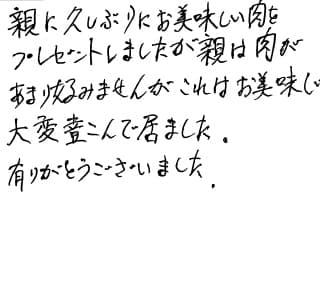 親に久しぶりにお美味しい肉を
プレゼントしましたが親は肉が
あまり好みませんがこれはお美味し
大変喜こんで居ました。
有りがとうございました.